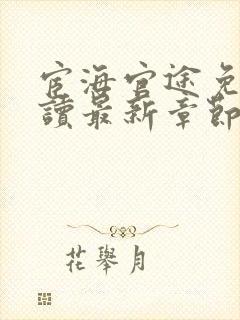 宦海官途免
讀最新章節
花舉月